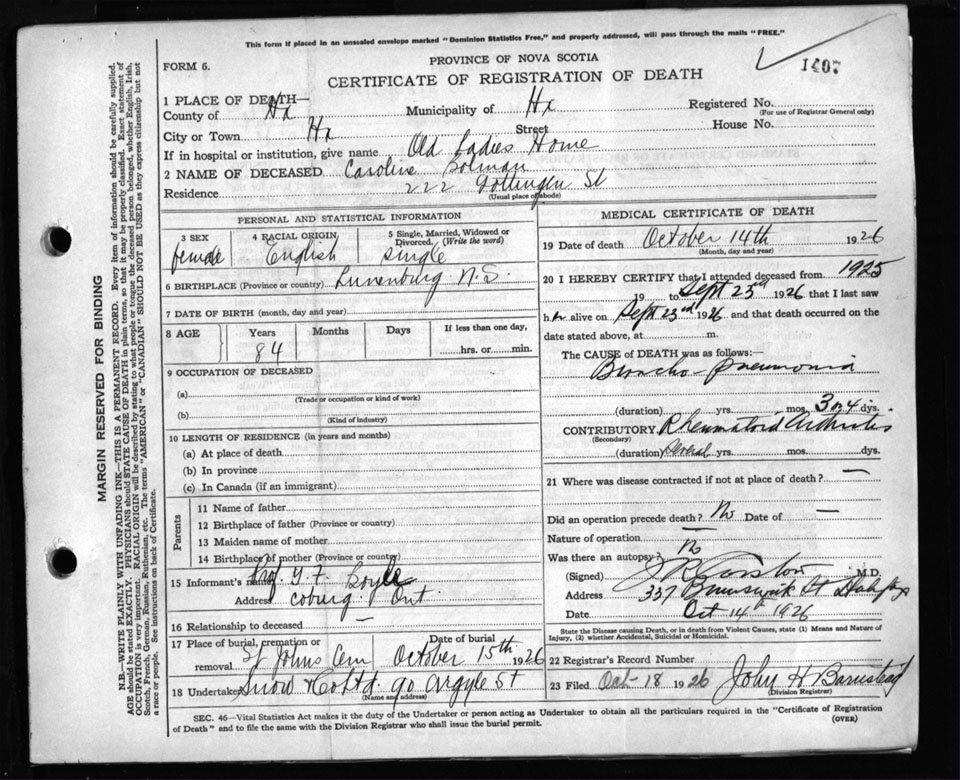 This form if placed in an unsealed envelope marked "Dominion Statistics Free," and properly addressed, will pass through the mails "FREE."
FORM 6.
PROVINCE OF NOVA SCOTIA
CERTIFICATE OF REGISTRATION OF DEATH
1407
1 PLACE OF DEATH—
County of Hx Municipality of Hx Registered No.
(For use of Registrar General only)
City or Town Hx Street House No.
If in hospital or institution, give name Old Ladies Home
2 NAME OF DECEASED Caroline Bolman
Residence 222 Gottingen St
(Usual place of abode)
PERSONAL AND STATISTICAL INFORMATION
3 SEX 4 RACIAL ORIGIN 5 Single, Married, Widowed or Divorced. (Write the word)
female English single
6 BIRTHPLACE (Province or country) Lunenburg N.S.
7 DATE OF BIRTH (month, day and year)
8 AGE Years Months Days If less than one day,
84 hrs. or min.
9 OCCUPATION OF DECEASED
(a)
(Trade or occupation or kind of work)
(b)
(Kind of industry)
10 LENGTH OF RESIDENCE (in years and months)
(a) At place of death
(b) In province
(c) In Canada (if an immigrant)
Parents
11 Name of father
12 Birthplace of father (Province or country)
13 Maiden name of mother
14 Birthplace of mother (Province or country)
15 Informant's name Prof. Boyle
Address Coburg Ont.
16 Relationship to deceased —
17 Place of burial, cremation or removal St Johns Cem Date of burial October 15th 1926
18 Undertaker Snow & Co Ltd. 90 Argyle St
(Name and address)
MEDICAL CERTIFICATE OF DEATH
19 Date of death October 14th 1926
(Month, day and year)
20 I HEREBY CERTIFY that I attended deceased from 1925
19 to Sept 23rd 1926 that I last saw
her alive on Sept 23rd 1926 and that death occurred on the
date stated above, at m.
The CAUSE of DEATH was as follows:—
Broncho-pneumonia
(duration) yrs. mos. 3 or 4 dys.
CONTRIBUTORY Rheumatoid Arthritis
(Secondary)
(duration) several yrs. mos. dys.
21 Where was disease contracted if not at place of death? —
Did an operation precede death? No Date of —
Nature of operation —
Was there an autopsy? No
(Signed) M.D.
Address 337 Brunswick St Halifax
Date Oct 14th 1926
State the Disease causing Death, or in death from Violent Causes, state (1) Means and Nature of Injury, (2) whether Accidental, Suicidal or Homicidal.
22 Registrar's Record Number
23 Filed Oct 18 1926 John H Barnstead
(Division Registrar)
SEC. 46—Vital Statistics Act makes it the duty of the Undertaker or person acting as Undertaker to obtain all the particulars required in the "Certificate of Registration
of Death" and to file the same with the Division Registrar who shall issue the burial permit. (OVER)
MARGIN RESERVED FOR BINDING
N.B.—WRITE PLAINLY WITH UNFADING INK—THIS IS A PERMANENT RECORD. Every item of information should be carefully supplied.
AGE should be stated EXACTLY. PHYSICIANS should STATE CAUSE OF DEATH in plain terms, so that it may be properly classified. Exact statement of
OCCUPATION is very important. RACIAL ORIGIN will be described by stating to what people or tongue the deceased person belonged, whether English, Irish,
Scotch, French, German, Russian, Ruthenian, etc. The terms "AMERICAN" or "CANADIAN" SHOULD NOT BE USED as they express citizenship but not
a race or people. See instructions on back of Certificate.